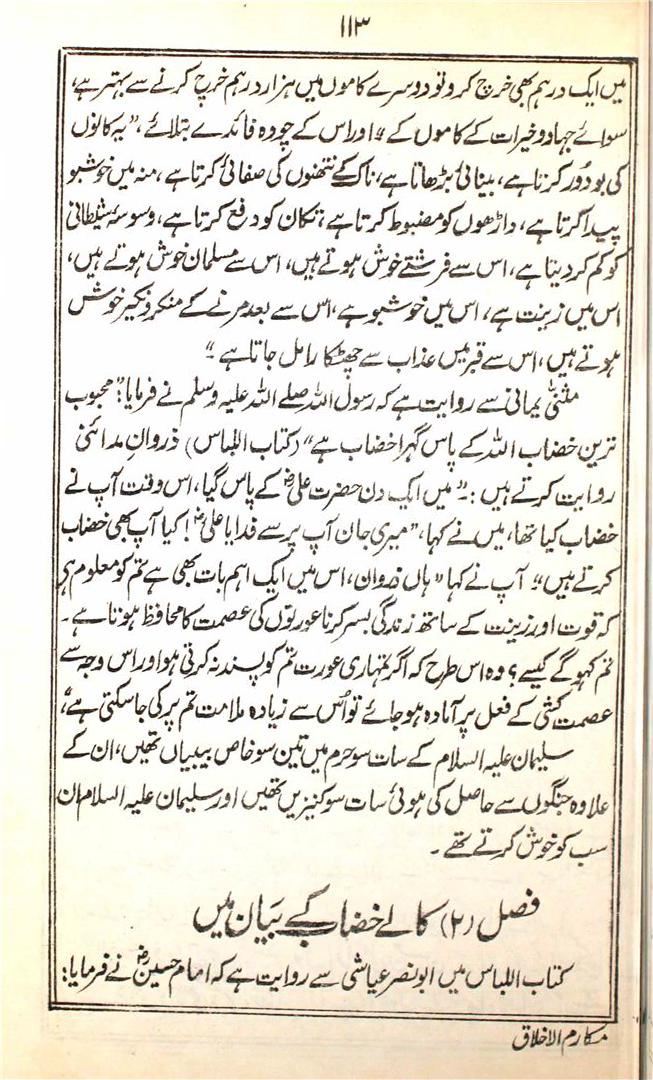 ۱۱۳
میں ایک درہم بھی خرچ کرو تو دوسرے کاموں میں ہزار درہم خرچ کرنے سے بہتر ہے،
سوائے جہاد و خیرات کے کاموں کے “ اور اس کے چودہ فائدے بتلائے ، ” یہ کانوں
کی بو دُور کرتا ہے ، بینائی بڑھاتا ہے ، ناک کے نتھنوں کی صفائی کرتا ہے ، منہ میں خوشبو
پیدا کرتا ہے ، داڑھوں کو مضبوط کرتا ہے ، تکان کو دفع کرتا ہے ، وسوسۂ شیطانی
کو کم کر دیتا ہے ، اس سے فرشتے خوش ہوتے ہیں، اس سے مسلمان خوش ہوتے ہیں،
اس میں زینت ہے ، اس میں خوشبو ہے ، اس سے بعد مرنے کے منکر و نکیر خوش
ہوتے ہیں ، اس سے قبر میں عذاب سے چھٹکارا مل جاتا ہے ۔“
مثنیٰ یمانی سے روایت ہے کہ رسول اللہ صلے اللہ علیہ وسلم نے فرمایا:” محبوب
ترین خضاب اللہ کے پاس گہرا خضاب ہے “ (کتاب اللباس) ذروان مدائنی
روایت کرتے ہیں :۔ ” میں ایک دن حضرت علیؓ کے پاس گیا، اس وقت آپ نے
خضاب کیا تھا، میں نے کہا، ” میری جان آپ پر سے فدا یا علیؓ ! کیا آپ بھی خضاب
کرتے ہیں “؛ آپ نے کہا ” ہاں ذروان، اس میں ایک اہم بات بھی ہے تم کو معلوم ہی
کہ قوت اور زینت کے ساتھ زندگی بسر کرنا عورتوں کی عصمت کا محافظ ہوتا ہے ۔
تم کہو گے کیسے ؟ وہ اس طرح کہ اگر تمہاری عورت تم کو پسند نہ کرتی ہو اور اس وجہ سے
عصمت کشی کے فعل پر آمادہ ہو جائے تو اُس سے زیادہ ملامت تم پر کی جا سکتی ہے “
سلیمان علیہ السلام کے سات سو حرم میں تین سو خاص بیبیاں تھیں، ان کے
علاوہ جنگوں سے حاصل کی ہوئی سات سو کنیزیں تھیں اور سلیمان علیہ السلام ان
سب کو خوش کرتے تھے ۔
فصل (۲) کالے خضاب کے بیان میں
کتاب اللباس میں ابو نصر عیاشی سے روایت ہے کہ امام حسینؓ نے فرمایا:
مکارم الاخلاق